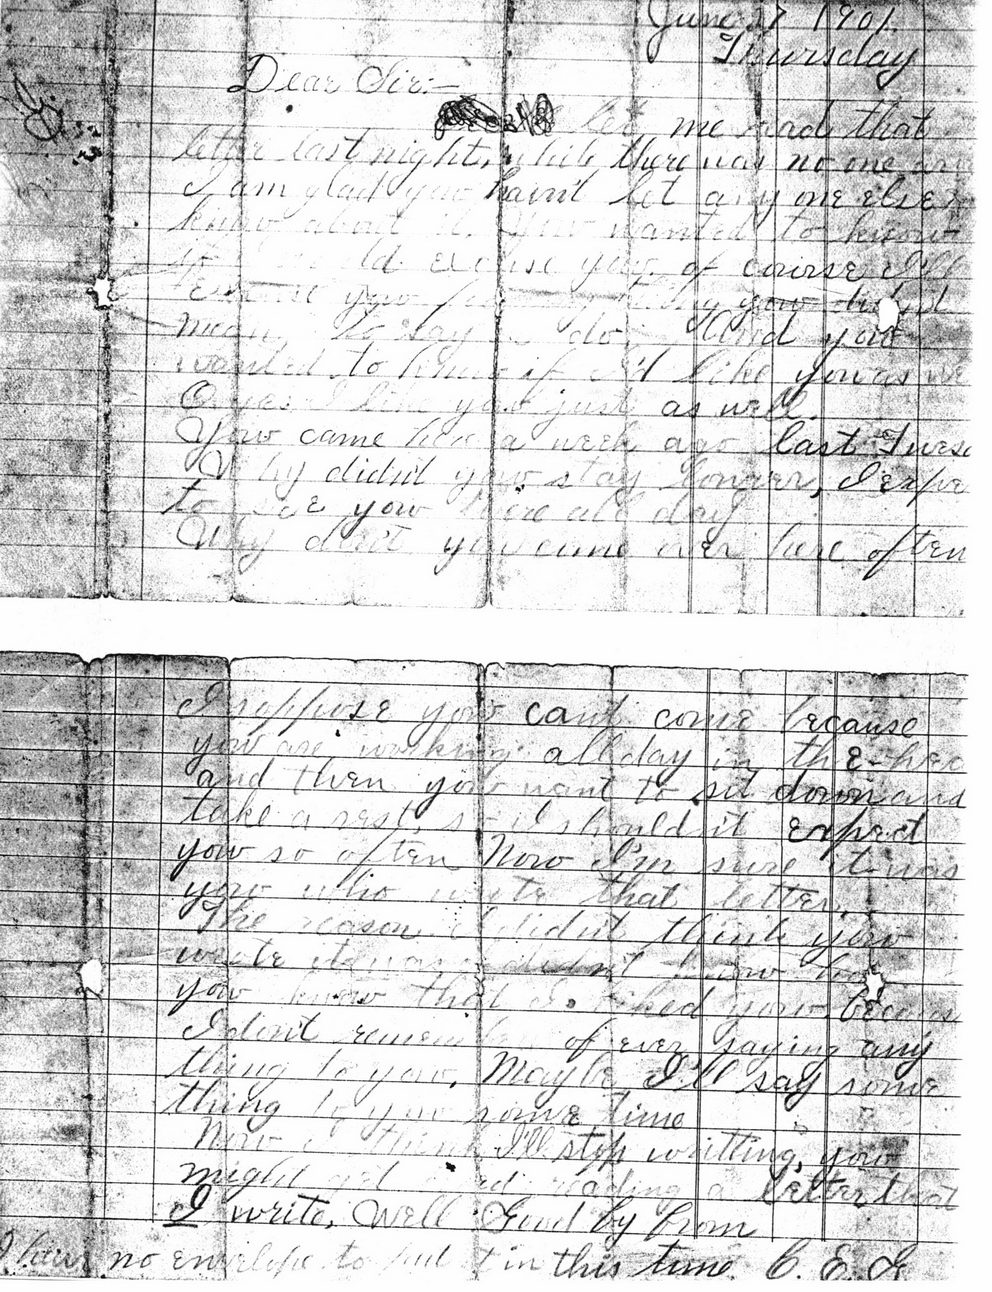 June 27 1901.
Thursday
Dear Sir:—
let me read that
letter last night, while there was no one
I am glad you havn't let any one else
know about it. You wanted to know
if I would excuse you, of course I'll
excuse you for you didnt
mean to say do. And you
wanted to know if I'd like you as
O yes I like you just as well.
You came here a week ago last
Why didn't you stay longer, I
to see you here all day
Why don't you come over here often
I suppose you cant come because
you are working all day in the
and then you want to sit down and
take a rest, so I shouldn't expect
you so often Now I'm sure it was
you who wrote that letter.
The reason I didn't think you
wrote it was I didn't know how
you knew that I liked you
I don't remember of ever saying any
thing to you, Maybe I'll say some
thing to you some time
Now I think I'll stop writting, you
might get tired reading a letter that
I write, Well Good by from
I have no envelope to put it in this time. C. E. G